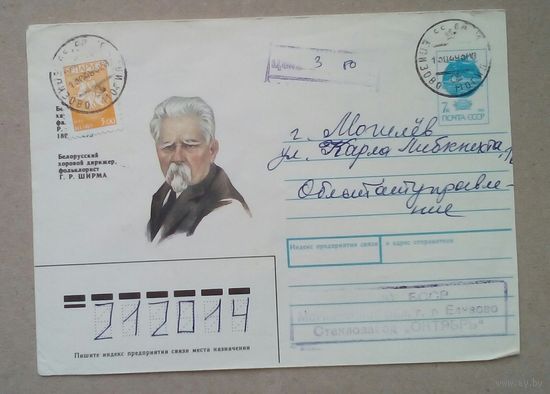 БЕЛАРУСЬ
5.00
Цена 3 80
7к
ПОЧТА СССР
г. Могилёв
ул. Карла Либкнехта,
Облстатуправле-
ние
Белорусский
хоровой дирижер,
фольклорист
Г. Р. ШИРМА
Индекс предприятия связи и адрес отправителя
БССР
г. п. Елизово
Стеклозавод „ОКТЯБРЬ"
212014
Пишите индекс предприятия связи места назначения
ay.by